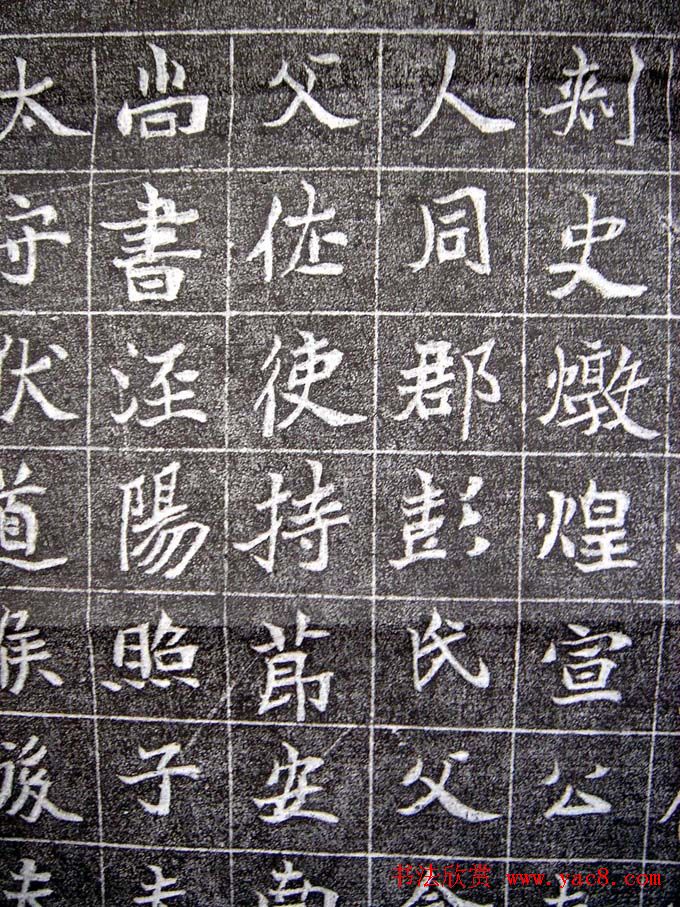 刺史燉煌宣公
人同郡彭氏父
父佐使持莭安南
尚書涇陽照子
太守伏道侯後
书法欣赏 www.yac8.com